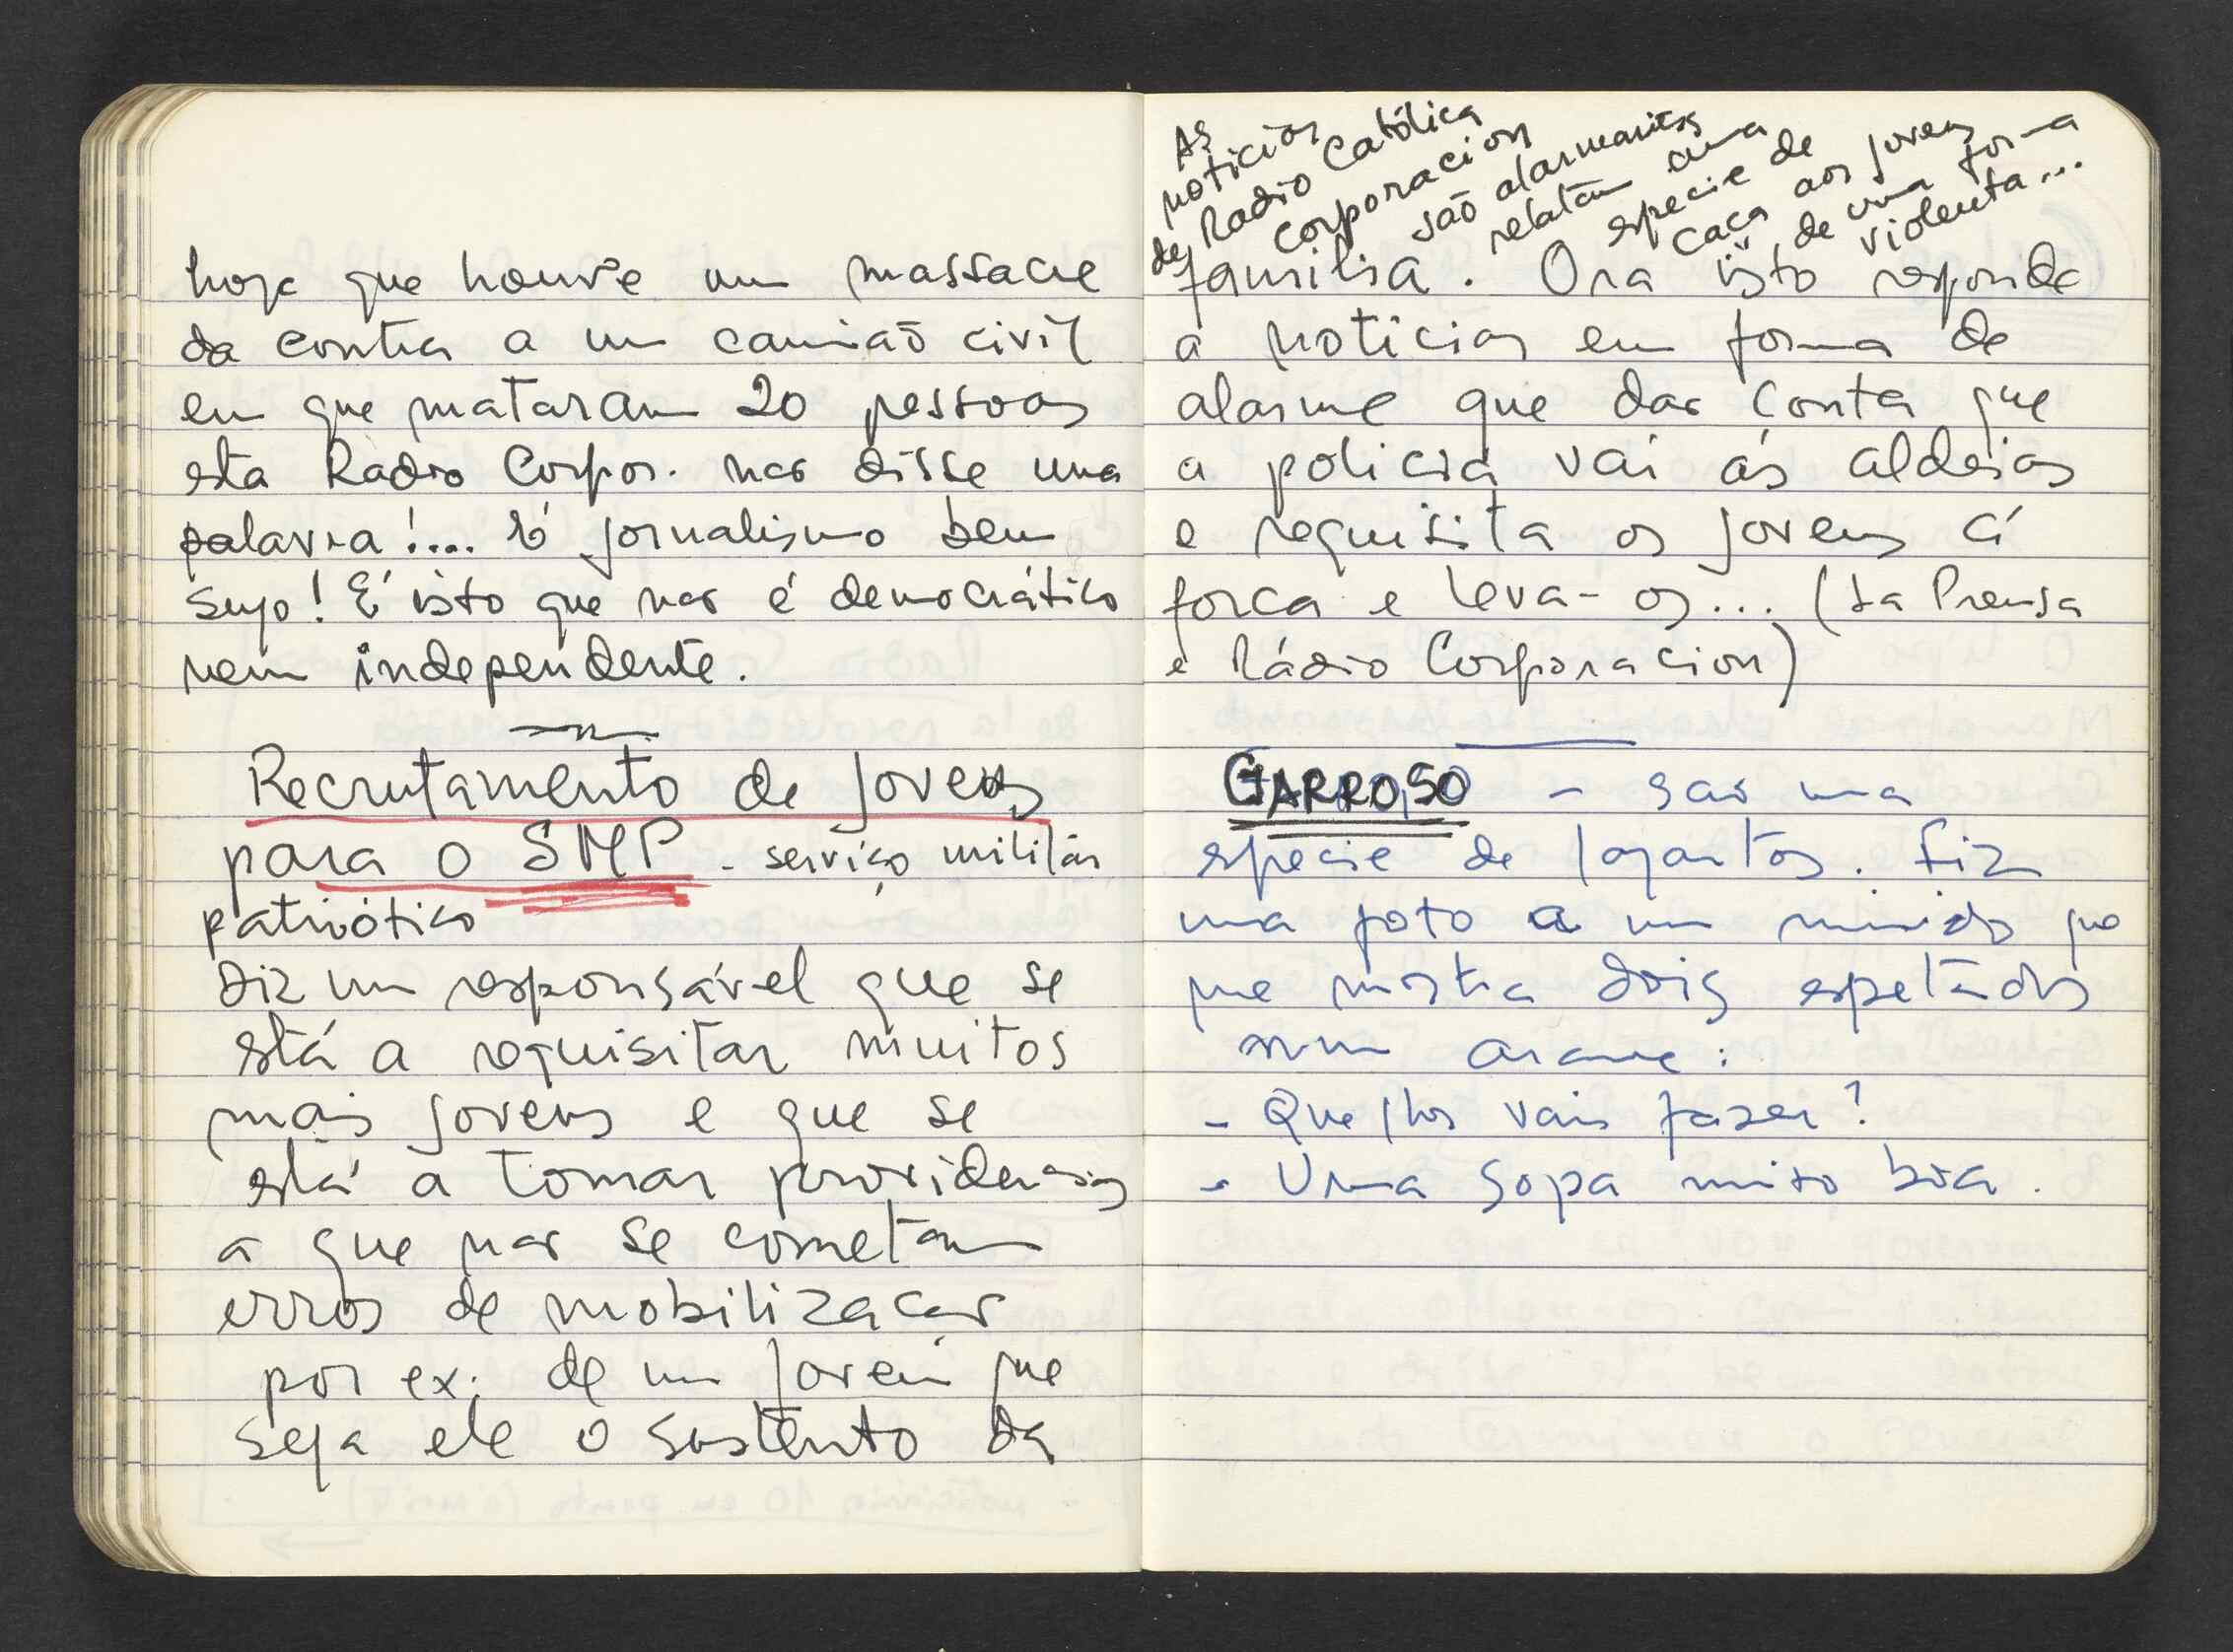 hoje que houve um massacre
da contra a um camião civil
em que mataram 20 pessoas
esta Radio Corpor. nao disse uma
palavra!.... É jornalismo bem
sujo! É isto que nao é democrático
nem independente.
Recrutamento de jovens
para o SMP - serviço militar
patriótico
Diz um responsável que se
está a requisitar muitos
mais jovens e que se
está a tomar providencias
a que nao se cometam
erros de mobilizacao
por ex: de um jovem que
seja ele o sustento da
As
noticias
de Radio Católica
Corporacion
são alarmantes
relatam uma
especie de
caca aos jovens
de uma forma
violenta...
familia. Ora isto responde
a noticias em forma de
alarme que dao conta que
a policia vai ás aldeias
e requisita os jovens á
forca e leva-os... (La Prensa
e Rádio Corporacion)
GARROSO - sao uma
especie de lagartos. Fiz
uma foto a um miudo que
me mostra dois espetados
num arame:
- Que lhes vais fazer?
- Uma sopa muito boa.